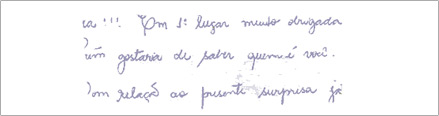 !!! Em 1º lugar muito obrigada
gostaria de saber quem é você.
relaçã ao presente surpresa já